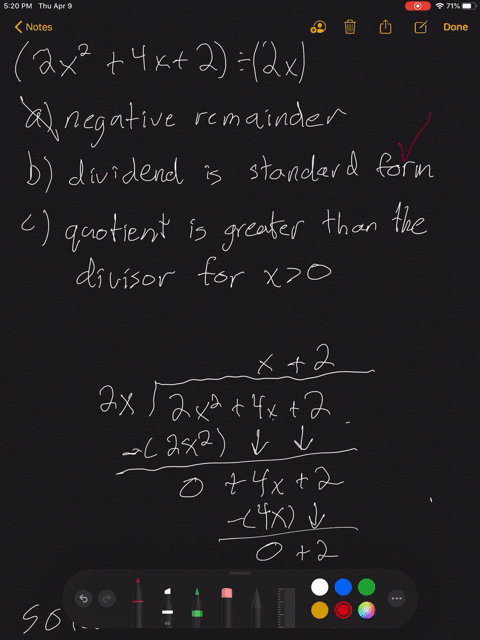 5:20 PM Thu Apr 9
71%
Notes
Done
(2x² + 4x + 2) ÷ (2x)
a) negative remainder
b) dividend is standard form
c) quotient is greater than the
divisor for x > 0
x + 2
2x ) 2x² + 4x + 2
-(2x²) ↓ ↓
0 + 4x + 2
-(4x) ↓
0 + 2